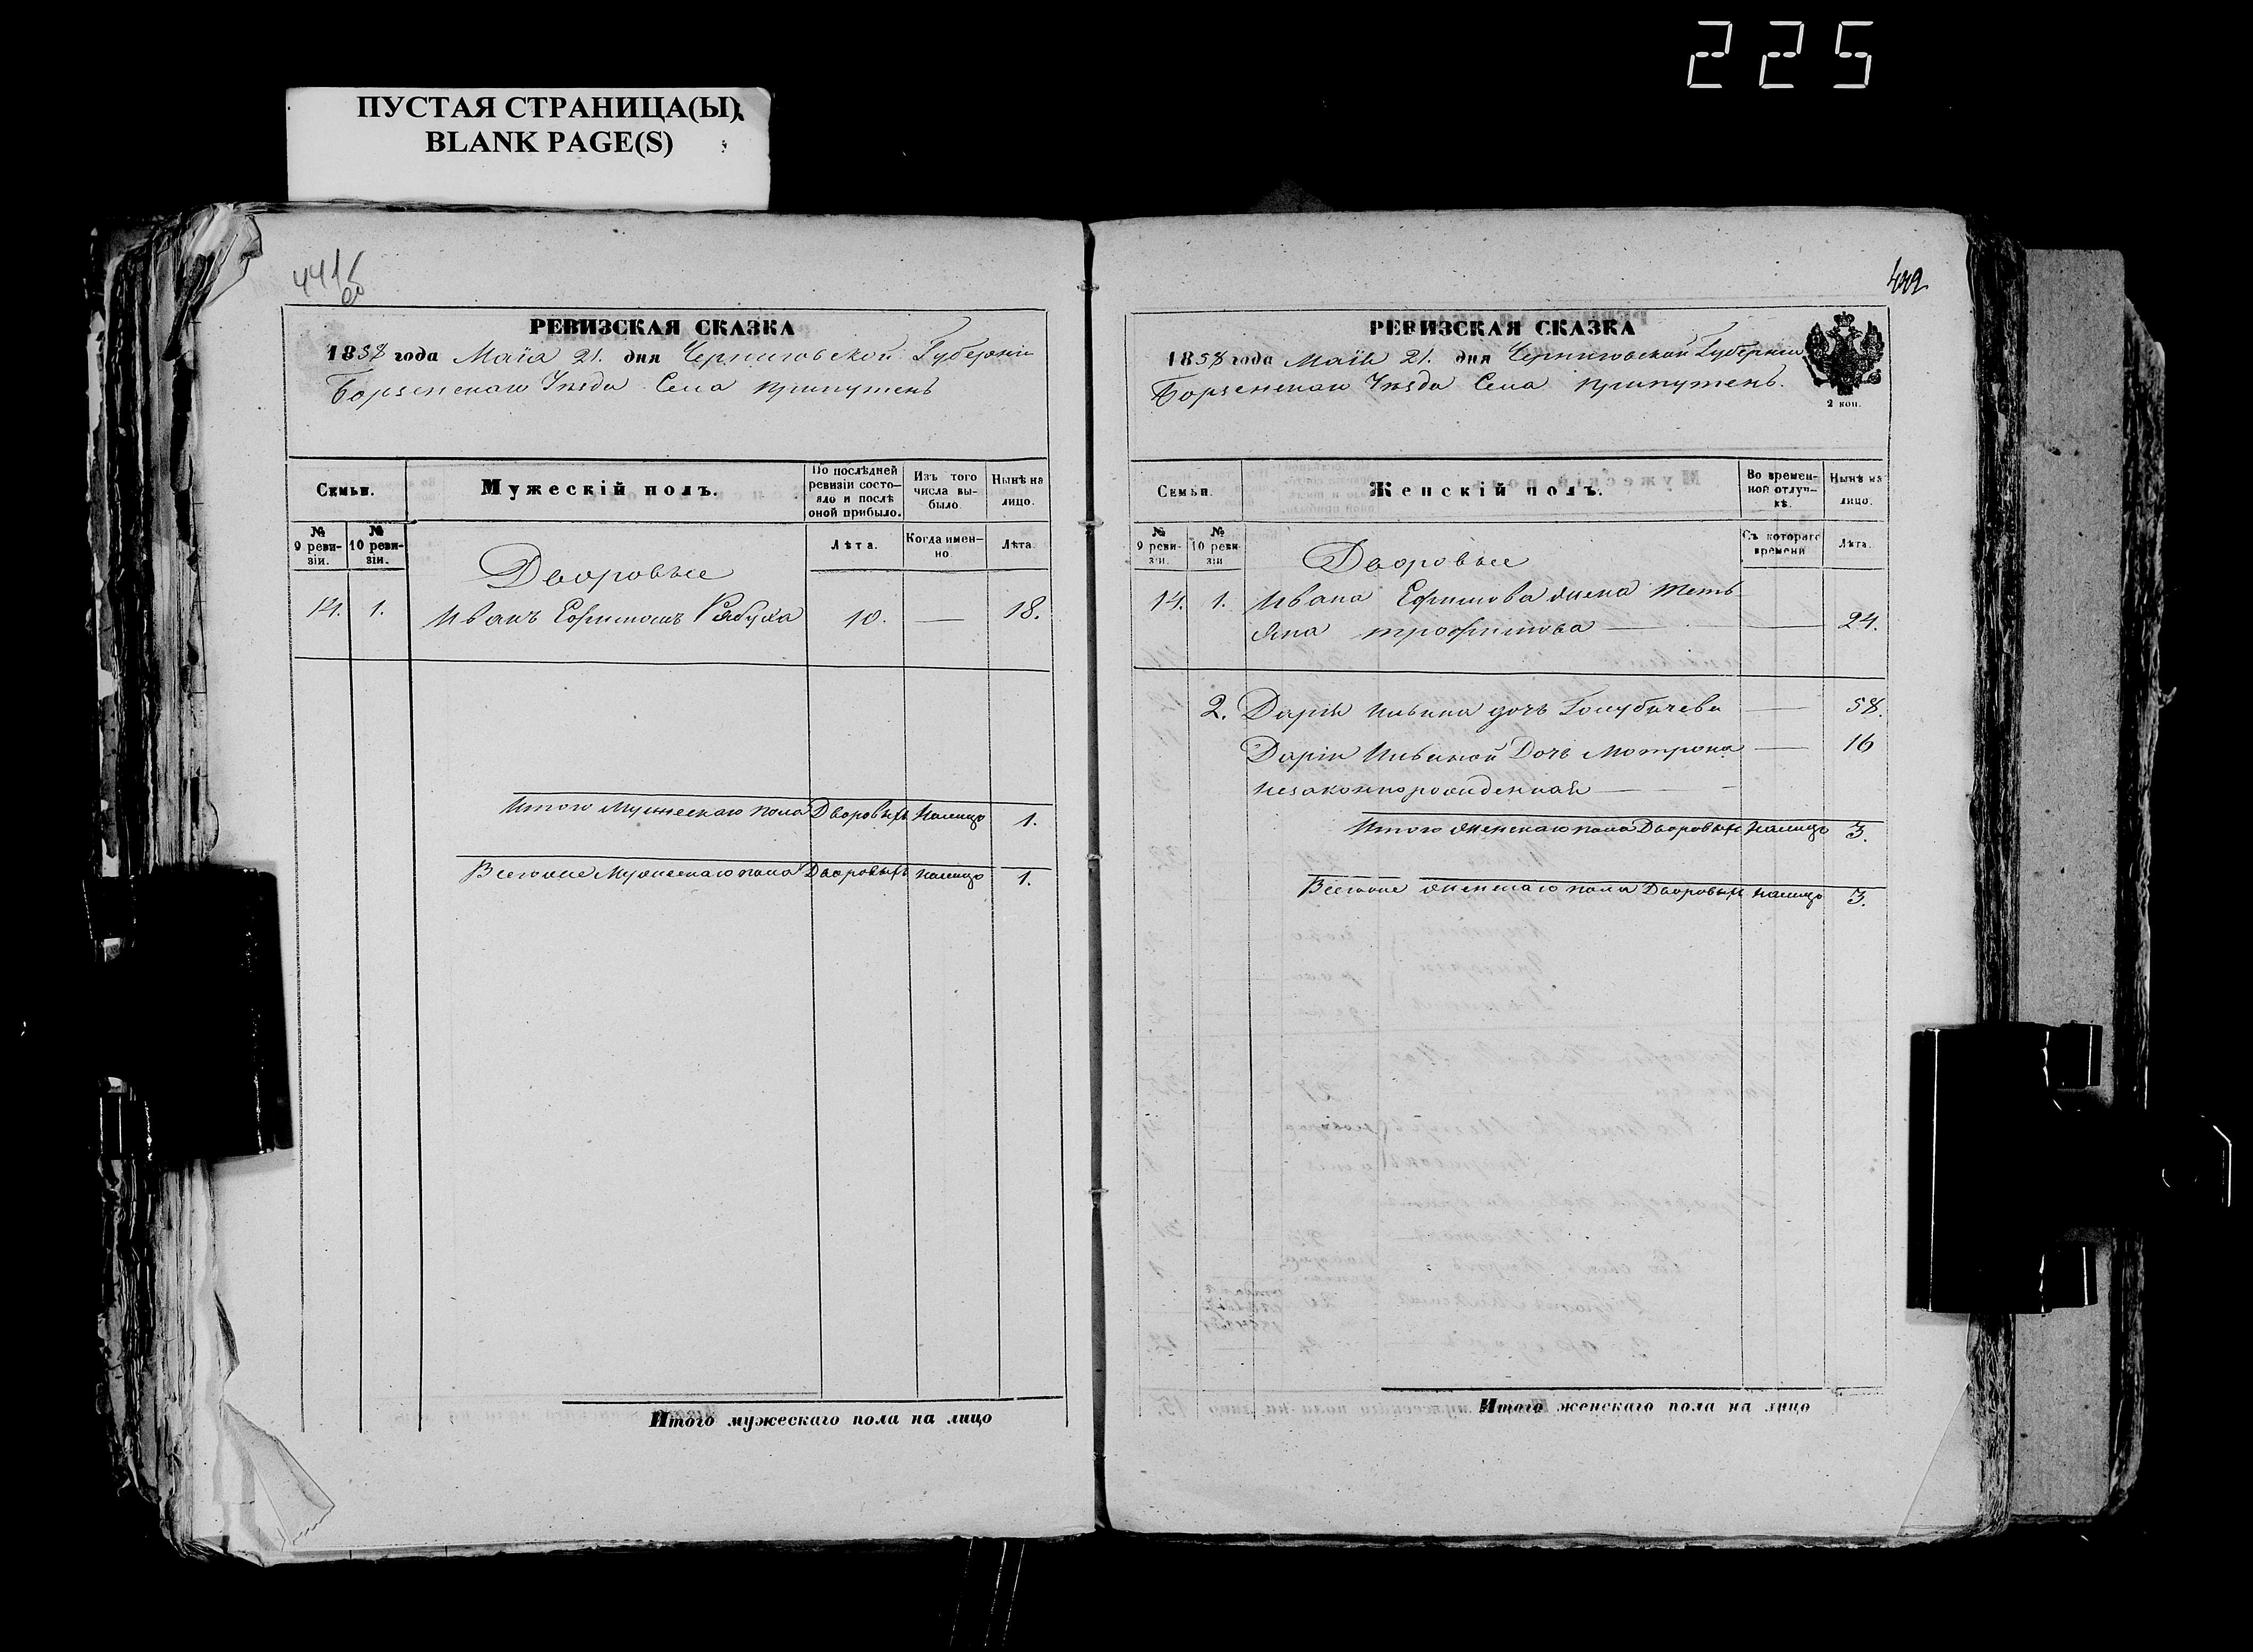 225
ПУСТАЯ СТРАНИЦА(Ы)
BLANK PAGE(S)
441 об
РЕВИЗСКАЯ СКАЗКА
1858 года Маія 21. дня Черниговской Губерніи
Борзенскаго Уѣзда Села Припутень
Семьи.
Мужескій полъ.
По послѣдней ревизіи состояло и послѣ оной прибыло.
Изъ того числа выбыло.
Нынѣ на лицо.
№ 9 ревизіи.
№ 10 ревизіи.
Лѣта.
Когда именно
Лѣта.
Дворовые
14. 1. Иванъ Ефимовъ Рябуха 10. — 18.
Итого Мужескаго пола Дворовыхъ налицо 1.
Всего же Мужескаго пола Дворовыхъ налицо 1.
Итого мужескаго пола на лицо
442
РЕВИЗСКАЯ СКАЗКА
1858 года Маія 21. дня Черниговской Губерніи
Борзенскаго Уѣзда Села Припутень.
2 коп.
Семьи.
Женскій полъ.
Во временной отлучкѣ.
Нынѣ на лицо.
№ 9 ревизіи.
№ 10 ревизіи
Съ котораго времени
Лѣта.
Дворовые
14. 1. Ивана Ефимова жена Теть
яна Трофимова — 24.
2. Дарія Ильина дочь Голубичева — 58.
Даріи Ильиной Дочь Мотрона — 16
незаконнорожденная —
Итого женскаго пола Дворовыхъ налицо 3.
Всего же женскаго пола Дворовыхъ налицо 3.
Итого женскаго пола на лицо